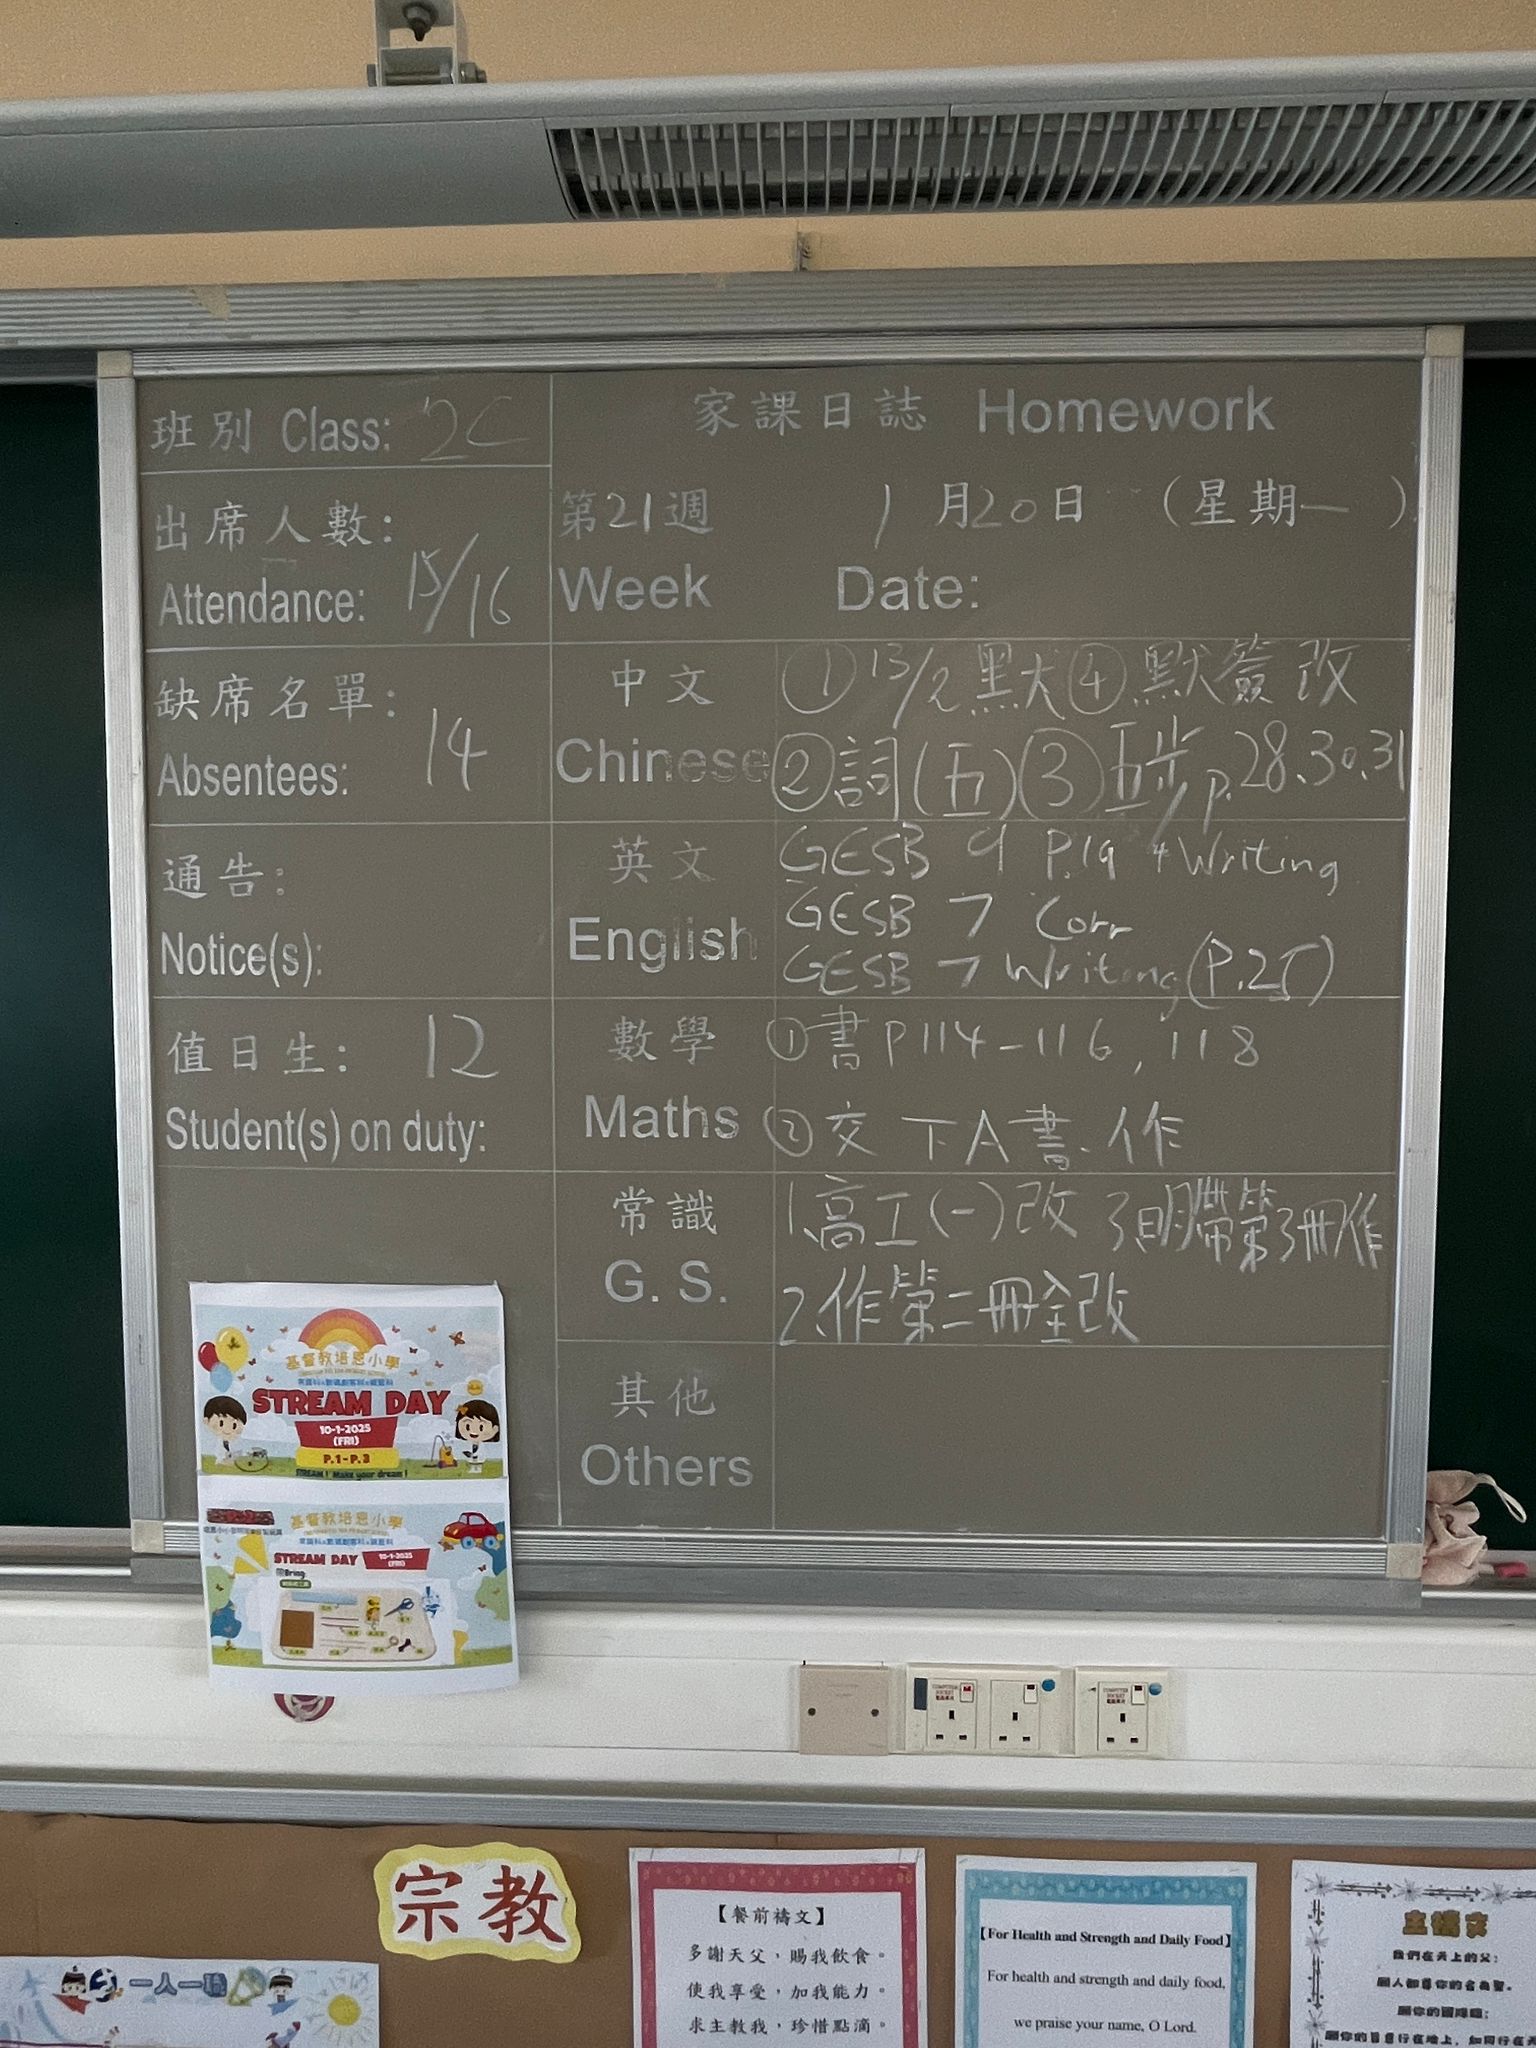 班別 Class: 2C
出席人數:
Attendance: 15/16
缺席名單:
Absentees: 14
通告:
Notice(s):
值日生: 12
Student(s) on duty:
家課日誌 Homework
第21週 1月20日 (星期一)
Week Date:
中文 ①13/2默 ④默簽改
Chinese ②詞(五) ③五步 p.28.30.31
英文 GESB 9 P.19 + Writing
GESB 7 Corr
English GESB 7 Writing (P.25)
數學 ①書P114-116, 118
Maths ②交下A書.作
常識 1.高工(一)改 3.明帶第3冊作
G. S. 2.作第二冊全改
其他
Others
基督教培恩小學
STREAM DAY
10-1-2025
(FRI)
P.1-P.3
STREAM! Make your dream!
基督教培恩小學
STREAM DAY 10-1-2025
(FRI)
Bring
COMPUTER SOCKET
COMPUTER SOCKET
宗教
一人一職
【餐前禱文】
多謝天父，賜我飲食。
使我享受，加我能力。
求主教我，珍惜點滴。
【For Health and Strength and Daily Food】
For health and strength and daily food,
we praise your name, O Lord.
主禱文
我們在天上的父：
願人都尊你的名為聖。
願你的國降臨；
願你的旨意行在地上，如同行在天